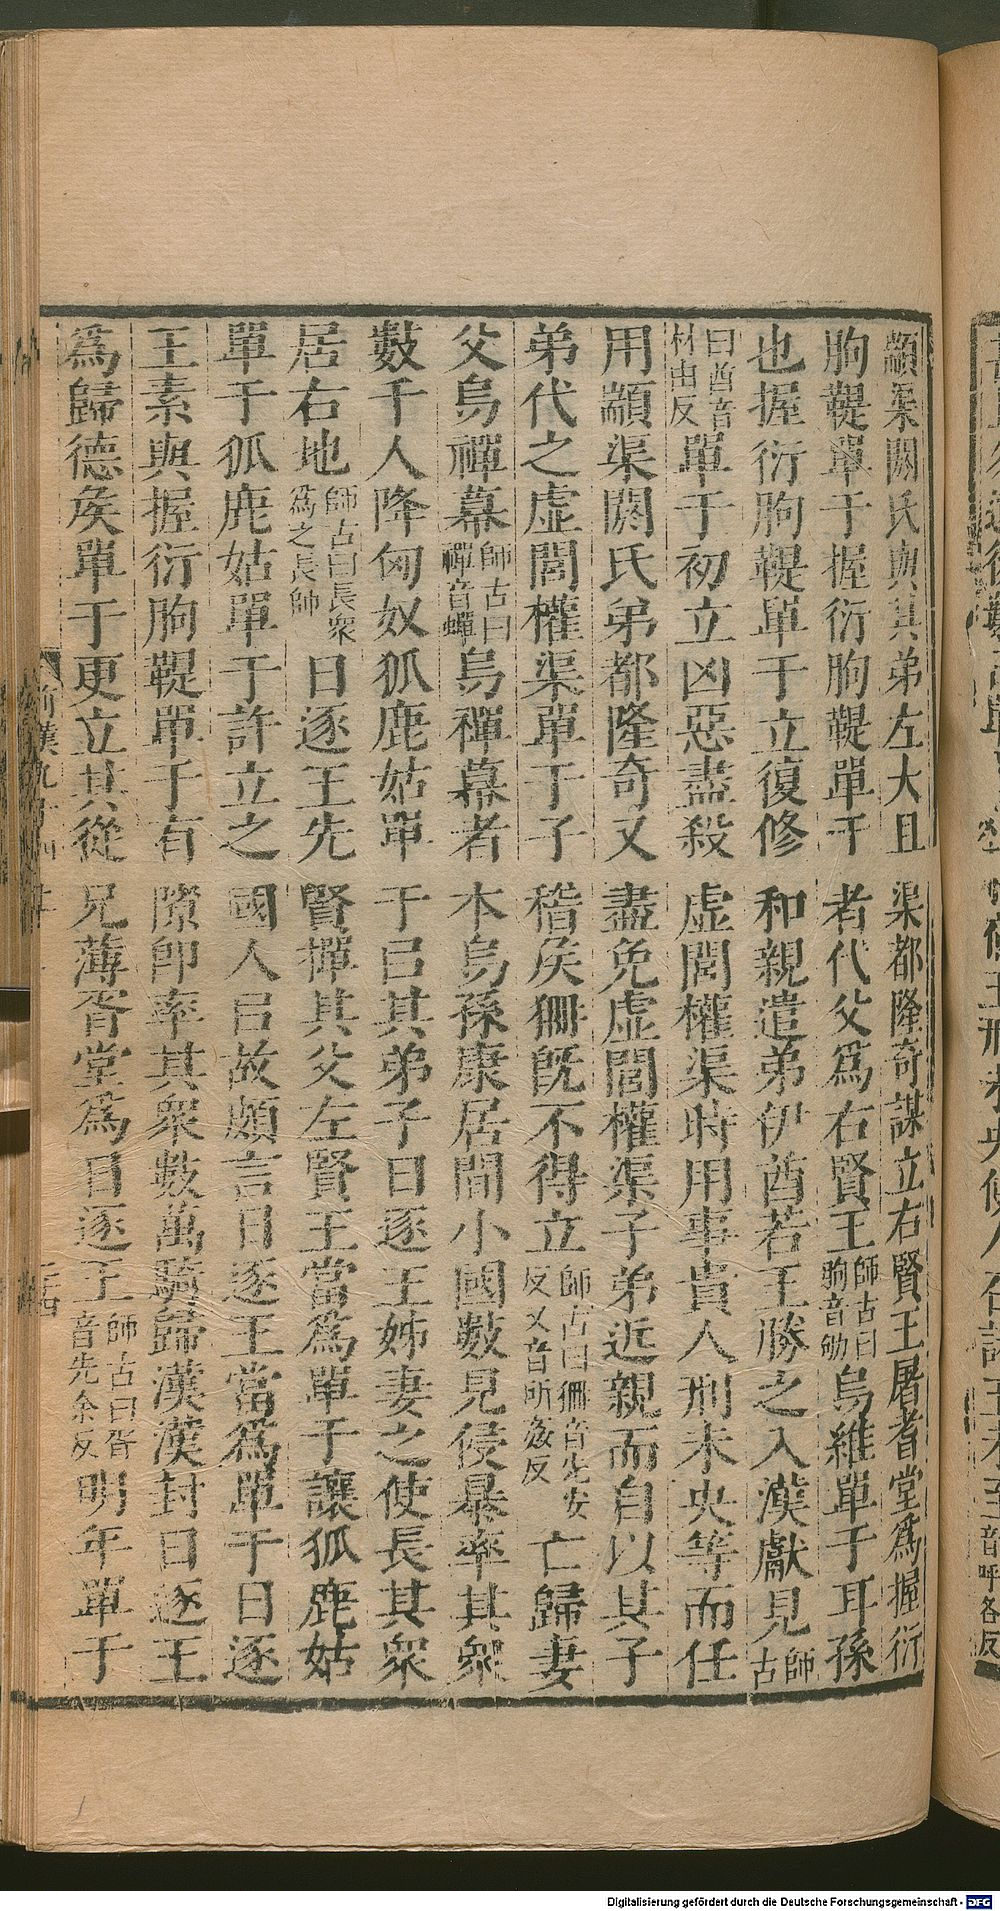 顓渠閼氏與其弟左大且渠都隆奇謀立右賢王屠耆堂爲握衍
朐鞮單于握衍朐鞮單于者代父爲右賢王師古曰朐音劬烏維單于耳孫
也握衍朐鞮單于立復修和親遣弟伊酋若王勝之入漢獻見師古
曰酋音材由反單于初立凶惡盡殺虛閭權渠時用事貴人刑未央等而任
用顓渠閼氏弟都隆奇又盡免虛閭權渠子弟近親而自以其子
弟代之虛閭權渠單于子稽侯狦既不得立師古曰狦音先安反又音所姦反亡歸妻
父烏禪幕師古曰禪音蟬烏禪幕者本烏孫康居間小國數見侵暴率其衆
數千人降匈奴狐鹿姑單于㠯其弟子日逐王姊妻之使長其衆
居右地師古曰長衆爲之長帥日逐王先賢撣其父左賢王當爲單于讓狐鹿姑
單于狐鹿姑單于許立之國人㠯故頗言日逐王當爲單于日逐
王素與握衍朐鞮單于有隙即率其衆數萬騎歸漢漢封日逐王
爲歸德侯單于更立其從兄薄胥堂爲日逐王師古曰胥音先余反明年單于
前漢九十四
Digitalisierung gefördert durch die Deutsche Forschungsgemeinschaft - DFG